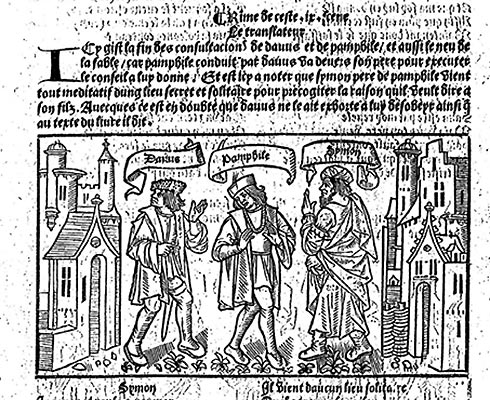 Rime de ceste .ix. scene.
Le translateur
ICy gist la fin des consultaciōs de davus et de pamphile/ et aussi le neu de
la fable/ car pamphile conduit par davus va devers son pere pour executer
le conseil a luy donne. Et est icy a noter que symon pere de pamphile vient
tout meditatif dung lieu secret et solitaire pour precogiter la raison quil veult dire a
son filz. Avecques ce est en doubte que davus ne le ait exhorte a luy desobeyr ainsi q
au texte du livre il dit.
Davus Pamphile Symon
Symon Il vient daucun lieu solitaire